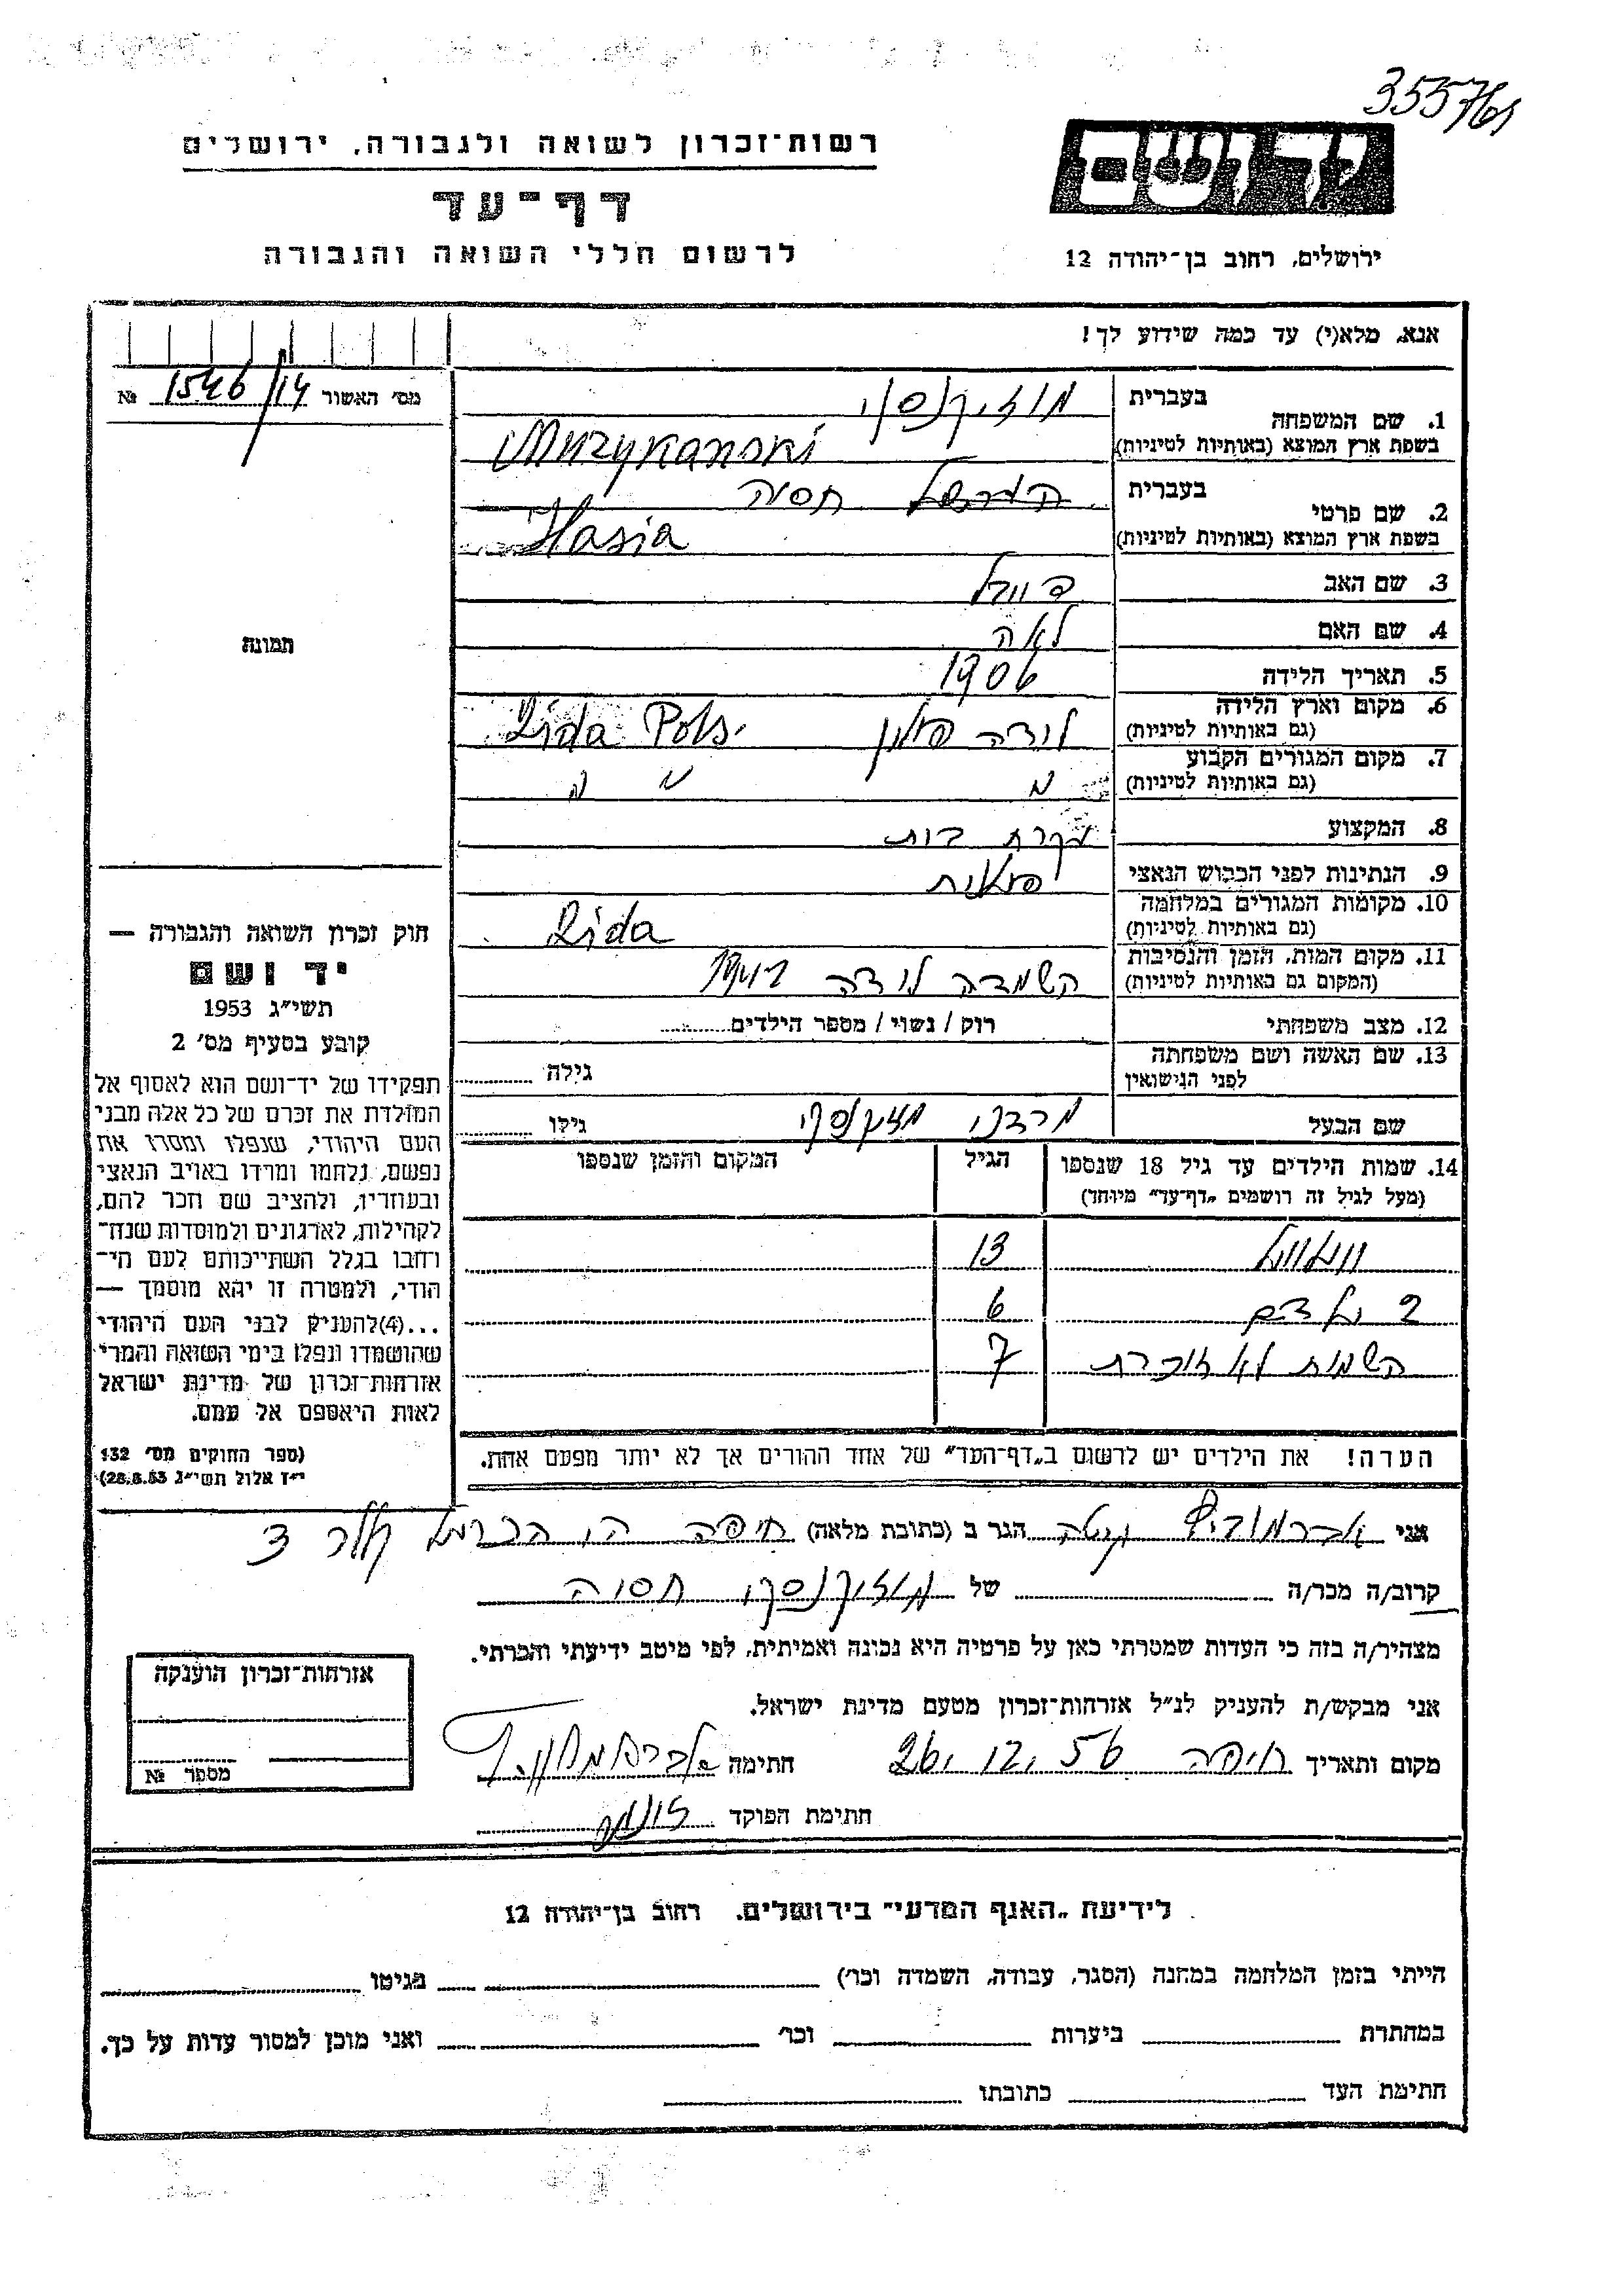 355761
רשות־זכרון לשואה ולגבורה, ירושלים
דף־עד
לרשום חללי השואה והגבורה
יד ושם
ירושלים, רחוב בן־יהודה 12
אנא, מלא(י) עד כמה שידוע לך!
מס׳ האשור 1546/14 №
1. שם המשפחה
בעברית
בשפת ארץ המוצא (באותיות לטיניות) Muzykanski
2. שם פרטי
בעברית חסיה
בשפת ארץ המוצא (באותיות לטיניות) Hasia
3. שם האב
4. שם האם לאה
5. תאריך הלידה 1906
6. מקום וארץ הלידה
(גם באותיות לטיניות) לידה פולין Lida
7. מקום המגורים הקבוע
(גם באותיות לטיניות)
8. המקצוע עקרת בית
9. הנתינות לפני הכבוש הנאצי פולנית
10. מקומות המגורים במלחמה
(גם באותיות לטיניות) Lida
11. מקום המות, הזמן והנסיבות
(המקום גם באותיות לטיניות) השמדה לידה
12. מצב משפחתי רוק / נשוי / מספר הילדים
13. שם האשה ושם משפחתה
לפני הנישואין גילה
שם הבעל גילו
14. שמות הילדים עד גיל 18 שנספו הגיל המקום והזמן שנספו
(מעל לגיל זה רושמים „דף־עד״ מיוחד)
13
2 ילדים 6
השמות לא זוכרת 7
הערה! את הילדים יש לרשום ב„דף־העד״ של אחד ההורים אך לא יותר מפעם אחת.
תמונה
חוק זכרון השואה והגבורה —
יד ושם
תשי״ג 1953
קובע בסעיף מס׳ 2
תפקידו של יד־ושם הוא לאסוף אל
המולדת את זכרם של כל אלה מבני
העם היהודי, שנפלו ומסרו את
נפשם, נלחמו ומרדו באויב הנאצי
ובעוזריו, ולהציב שם וזכר להם,
לקהילות, לארגונים ולמוסדות שנח־
רחבו בגלל השתייכותם לעם הי־
הודי, ולמטרה זו יהא מוסמך —
...(4)להעניק לבני העם היהודי
שהושמדו ונפלו בימי השואה והמרי
אזרחות־זכרון של מדינת ישראל
לאות היאספם אל עמם.
(ספר החוקים מס׳ 132
י״ז אלול תשי״ג 28.8.53)
אני אברמוביץ הגר ב (כתובת מלאה) חיפה הר הכרמל
קרוב/ה מכר/ה של מוזיקנסקי חסיה
מצהיר/ה בזה כי העדות שמסרתי כאן על פרטיה היא נכונה ואמיתית, לפי מיטב ידיעתי והכרתי.
אני מבקש/ת להעניק לנ״ל אזרחות־זכרון מטעם מדינת ישראל.
מקום ותאריך חיפה 26.12.56 חתימה
חתימת הפוקד
אזרחות־זכרון הוענקה
מספר №
לידיעת „האגף המדעי״ בירושלים, רחוב בן־יהודה 12
הייתי בזמן המלחמה במחנה (הסגר, עבודה, השמדה וכו׳) בגיטו
במחתרת ביערות וכו׳ ואני מוכן למסור עדות על כך.
חתימת העד כתובתו